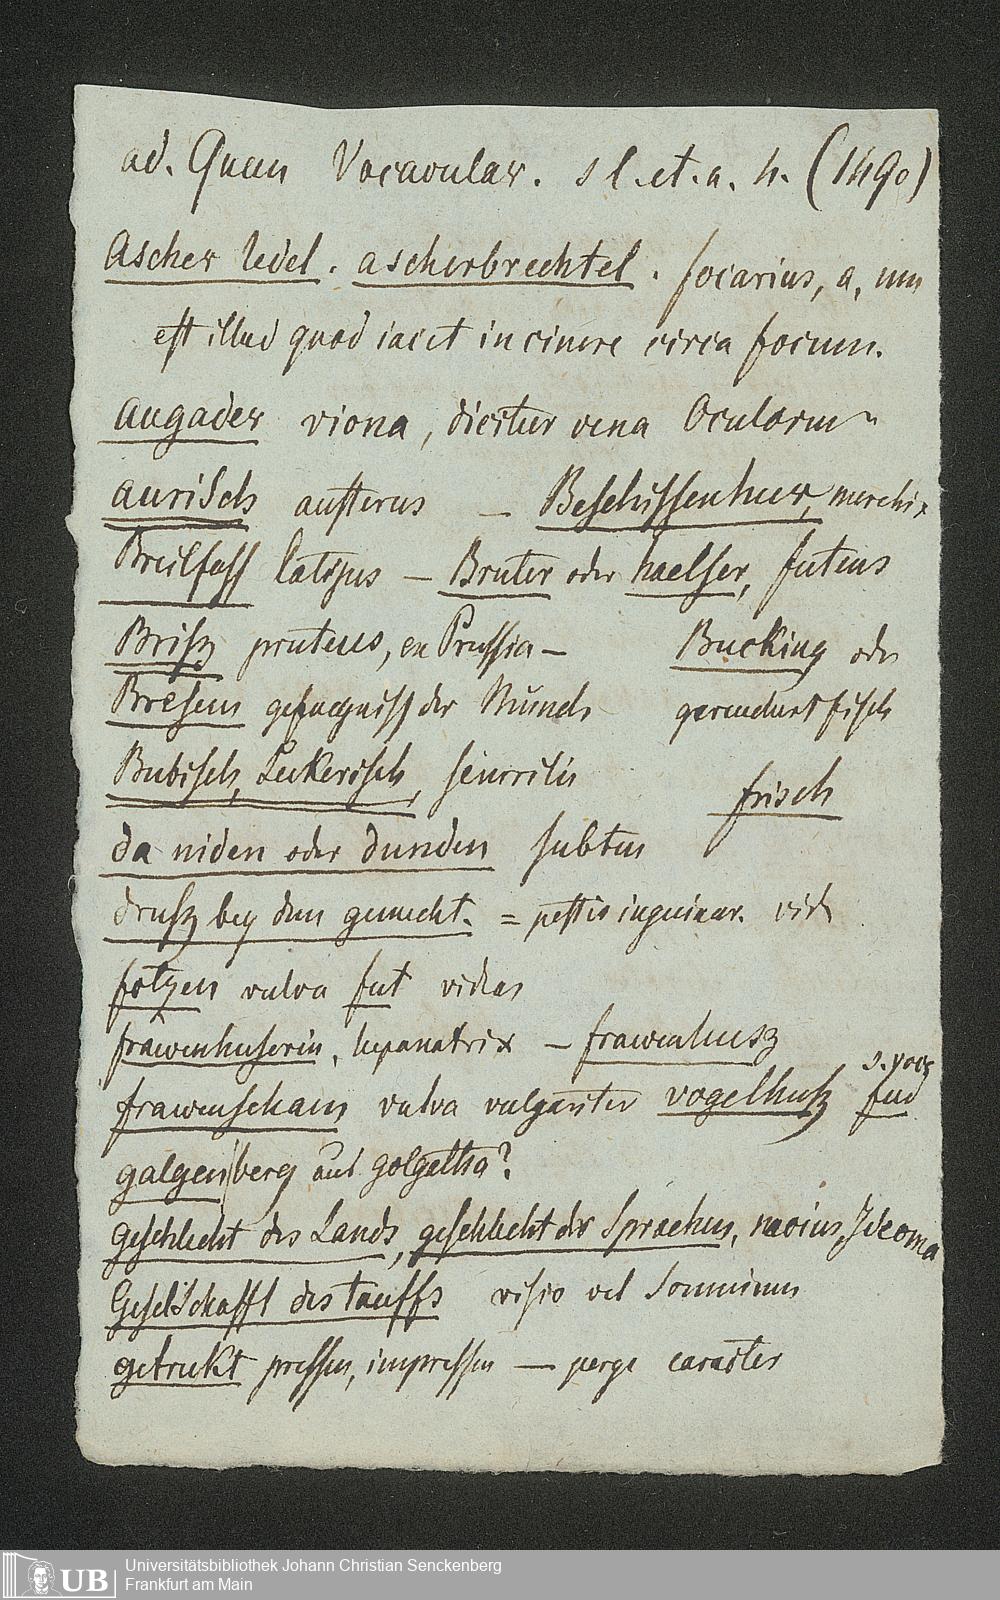 ad. Quan Vocavular. s l. et. a. h. (1490)
Ascher zedel. ascherbrechtel. focarius, a, um
est illud quod iacet in cinere circa focum.
augader viona, dicitur vena Ocularum
aurisch austerus — Beschissenhuer, merchix
Breilfass latipus — Bruter oder haelser, futeus
Brisz pruteus, en Prussia —
Bucking oder
Bresem gefaegniss der Münch
gereuchert fisch
Bubisch, Leckerisch, scurrilis
frisch
da niden oder dunden subtus
drusz bey dem gemecht. = pestis inguinar. vid
fotzen vulva fut videas
frawenhuserin, lupanatrix — frawenhusz
frawenscham vulva vulgariter vogelhusz fud
s. votz
galgen berg aus golgatha?
geschlecht des Lands, geschlecht der Sprachen, nacius, Ideoma
Gesellschafft des tauffs visio vel Somnium
getruckt pressus, impressus — perge caracter
UB
Universitätsbibliothek Johann Christian Senckenberg
Frankfurt am Main